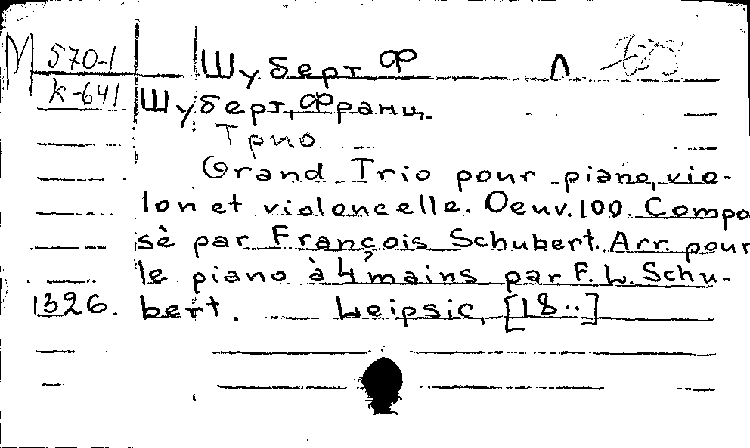 М 570-1 Шуберт Ф Л
К-641 Шуберт, Франц.
Трио
Grand Trio pour piano, vio-
lon et violoncelle. Oeuv. 100. Compo
sè par François Schubert. Arr. pour
le piano à 4 mains par F. L. Schu-
1326. bert. Leipsic, [18..]